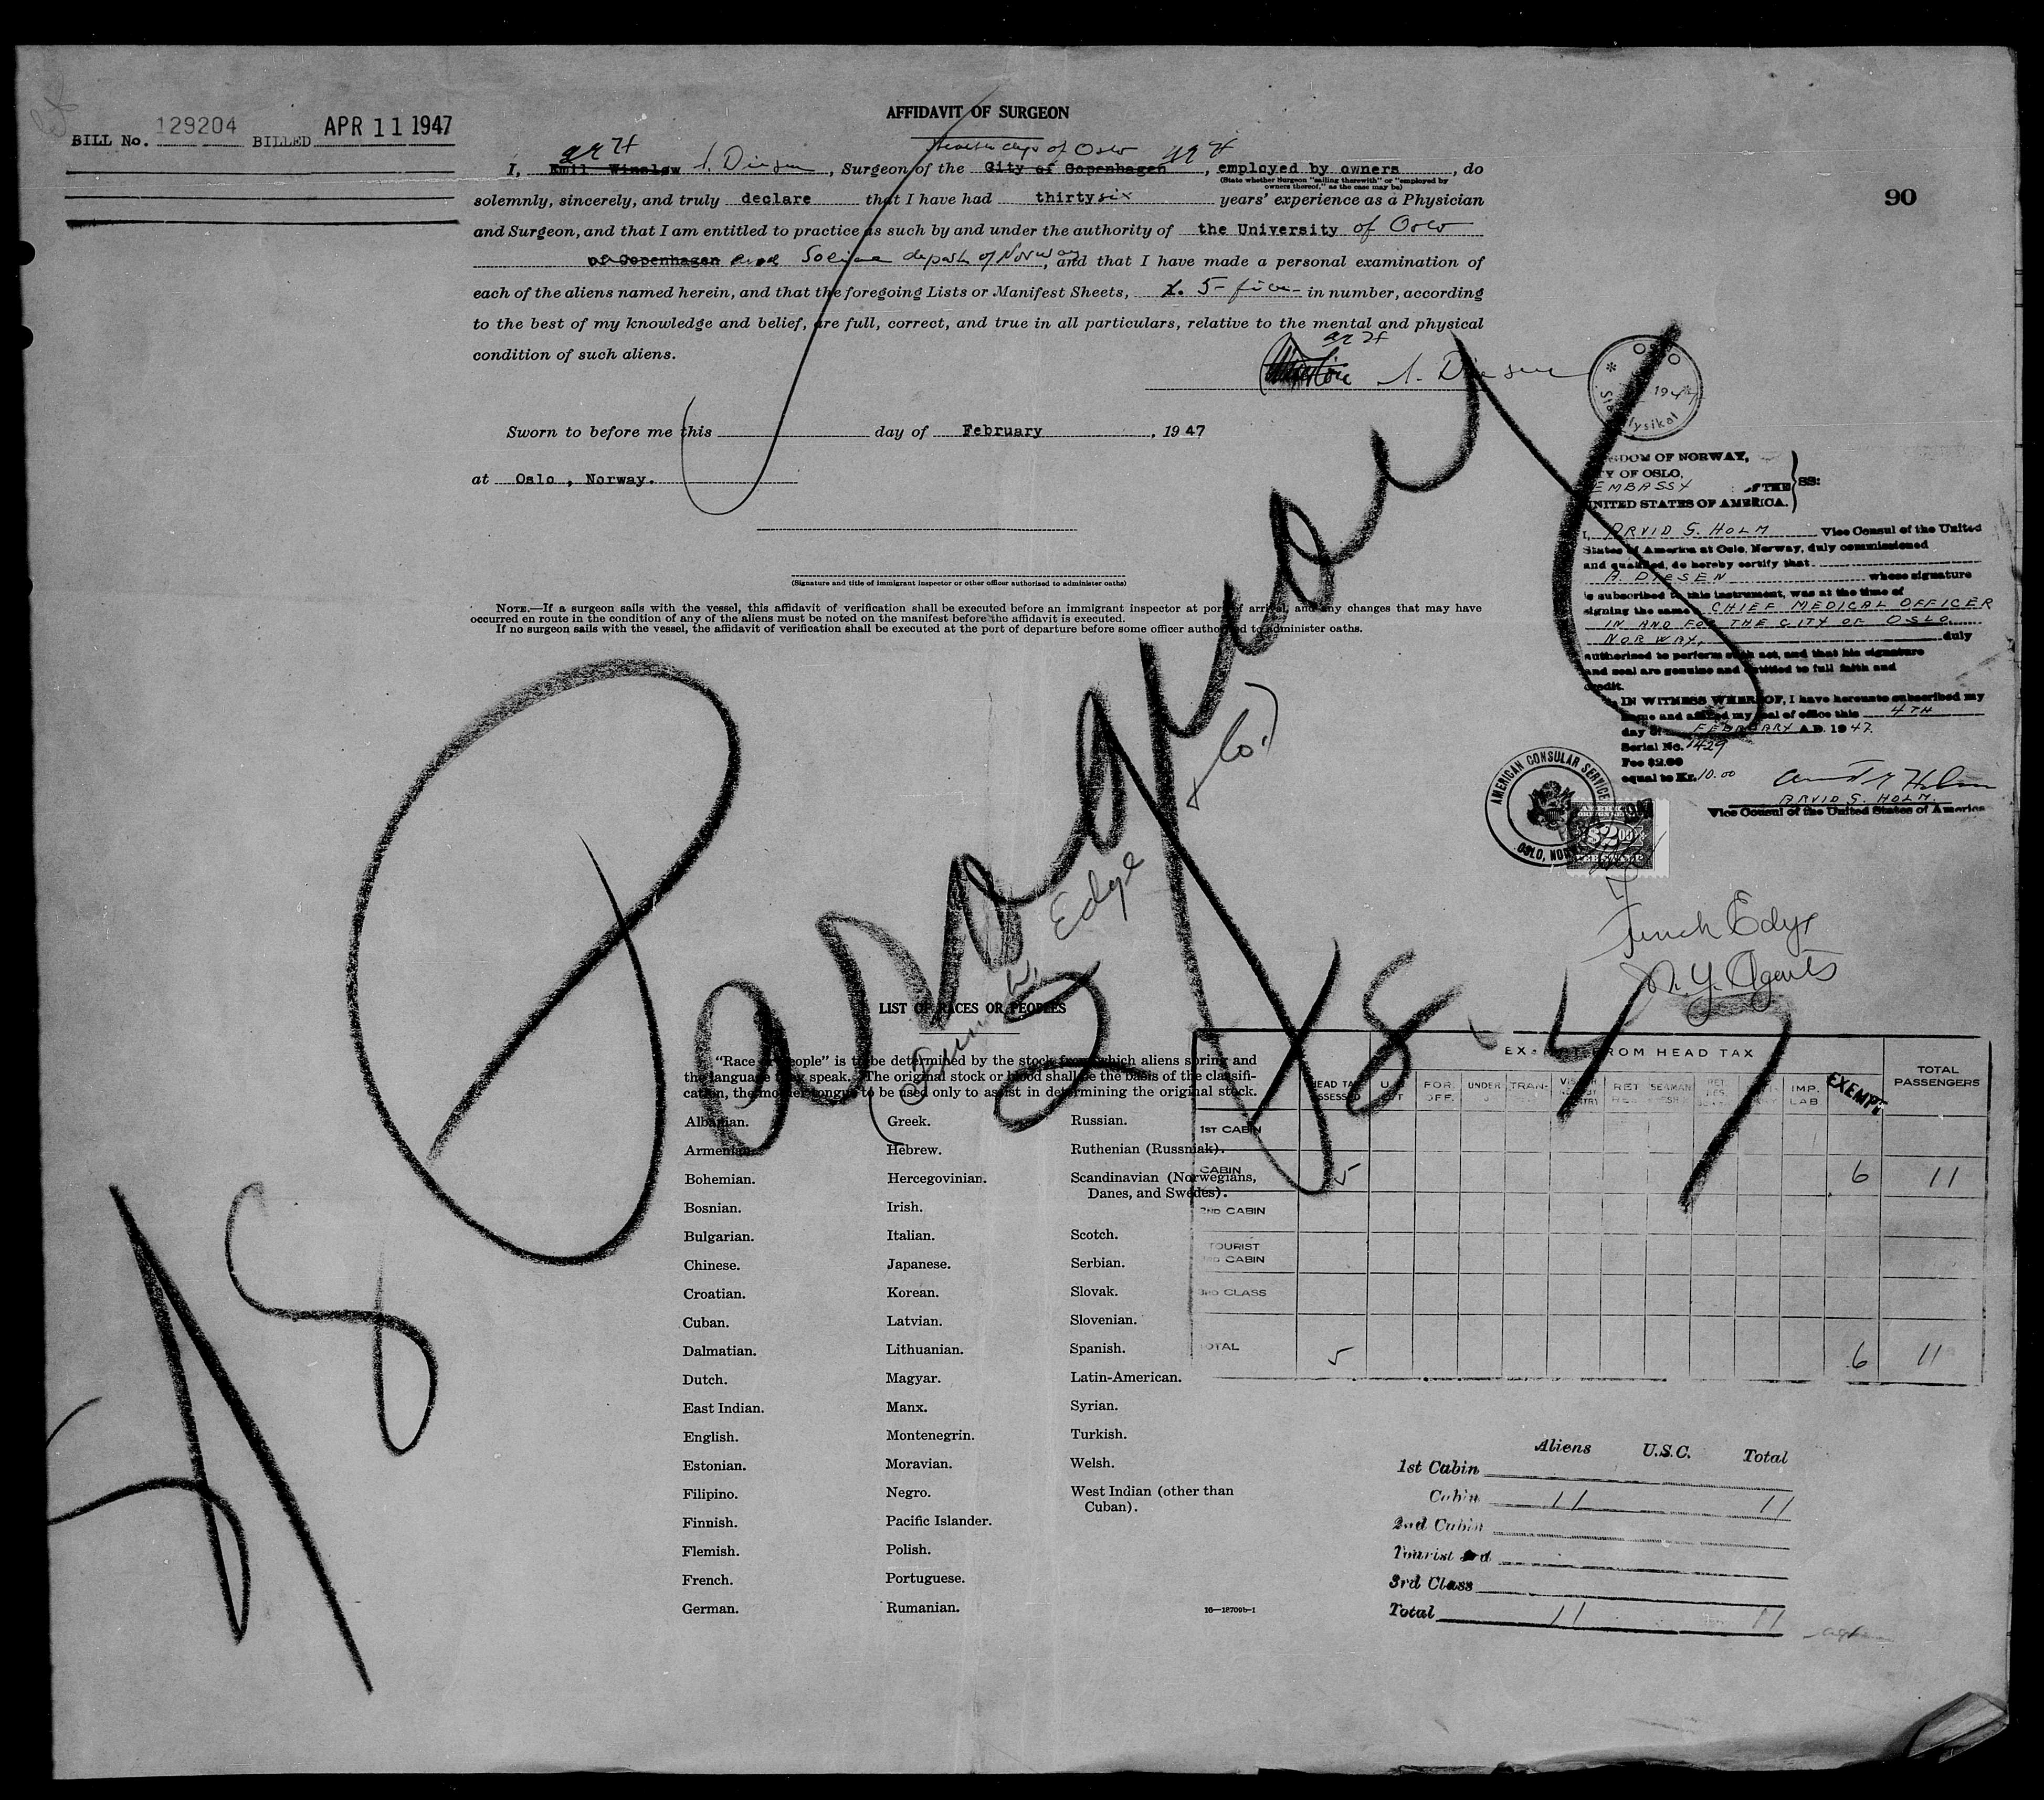 BILL No. 129204 BILLED APR 11 1947
AFFIDAVIT OF SURGEON
of Oslo
I, Emil Winsløw A. Diesen, Surgeon of the City of Copenhagen, employed by owners, do
(State whether Surgeon "sailing therewith" or "employed by
owners thereof," as the case may be)
solemnly, sincerely, and truly declare that I have had thirty six years' experience as a Physician
90
and Surgeon, and that I am entitled to practice as such by and under the authority of the University of Oslo
of Copenhagen and of Norway, and that I have made a personal examination of
each of the aliens named herein, and that the foregoing Lists or Manifest Sheets, 5 - five - in number, according
to the best of my knowledge and belief, are full, correct, and true in all particulars, relative to the mental and physical
condition of such aliens.
A. Diesen
OSLO
Sworn to before me this day of February, 1947
at Oslo, Norway.
(Signature and title of immigrant inspector or other officer authorized to administer oaths)
NOTE.—If a surgeon sails with the vessel, this affidavit of verification shall be executed before an immigrant inspector at port of arrival, and any changes that may have
occurred en route in the condition of any of the aliens must be noted on the manifest before the affidavit is executed.
If no surgeon sails with the vessel, the affidavit of verification shall be executed at the port of departure before some officer authorized to administer oaths.
KINGDOM OF NORWAY,
CITY OF OSLO,
EMBASSY OF THE SS:
UNITED STATES OF AMERICA.
I, ARVID G. HOLM Vice Consul of the United
States of America at Oslo, Norway, duly commissioned
and qualified, do hereby certify that
A. DIESEN whose signature
is subscribed to this instrument, was at the time of
signing the same CHIEF MEDICAL OFFICER
IN AND FOR THE CITY OF OSLO
NORWAY, duly
authorized to perform such act, and that his signature
and seal are genuine and entitled to full faith and
credit.
IN WITNESS WHEREOF, I have hereunto subscribed my
name and affixed my seal of office this 4TH
day of FEBRUARY A.D. 1947.
Serial No. 1429
Fee $2.00
equal to Kr. 10.00
ARVID G. HOLM
Vice Consul of the United States of America
AMERICAN CONSULAR SERVICE
OSLO, NORWAY
$2.00
FEE STAMP
Paraguay
2/18-47
(Funch, Edye & Co.)
Funch Edye
N.Y. Agents
LIST OF RACES OR PEOPLES
"Race or people" is to be determined by the stock from which aliens spring and
the language they speak. The original stock or blood shall be the basis of the classifi-
cation, the mother tongue to be used only to assist in determining the original stock.
Albanian. Greek. Russian.
Armenian. Hebrew. Ruthenian (Russniak).
Bohemian. Hercegovinian. Scandinavian (Norwegians,
Danes, and Swedes).
Bosnian. Irish.
Bulgarian. Italian. Scotch.
Chinese. Japanese. Serbian.
Croatian. Korean. Slovak.
Cuban. Latvian. Slovenian.
Dalmatian. Lithuanian. Spanish.
Dutch. Magyar. Latin-American.
East Indian. Manx. Syrian.
English. Montenegrin. Turkish.
Estonian. Moravian. Welsh.
Filipino. Negro. West Indian (other than
Cuban).
Finnish. Pacific Islander.
Flemish. Polish.
French. Portuguese.
German. Rumanian.
16—18709b-1
EXEMPT FROM HEAD TAX
HEAD TAX ASSESSED FOR. OFF. UNDER TRAN- RET SEAMAN IMP. LAB EXEMPT TOTAL PASSENGERS
1ST CABIN
CABIN 5 6 11
2ND CABIN
TOURIST
3RD CABIN
3RD CLASS
TOTAL 5 6 11
Aliens U.S.C. Total
1st Cabin
Cabin 11 11
2nd Cabin
Tourist 3rd
3rd Class
Total 11 11